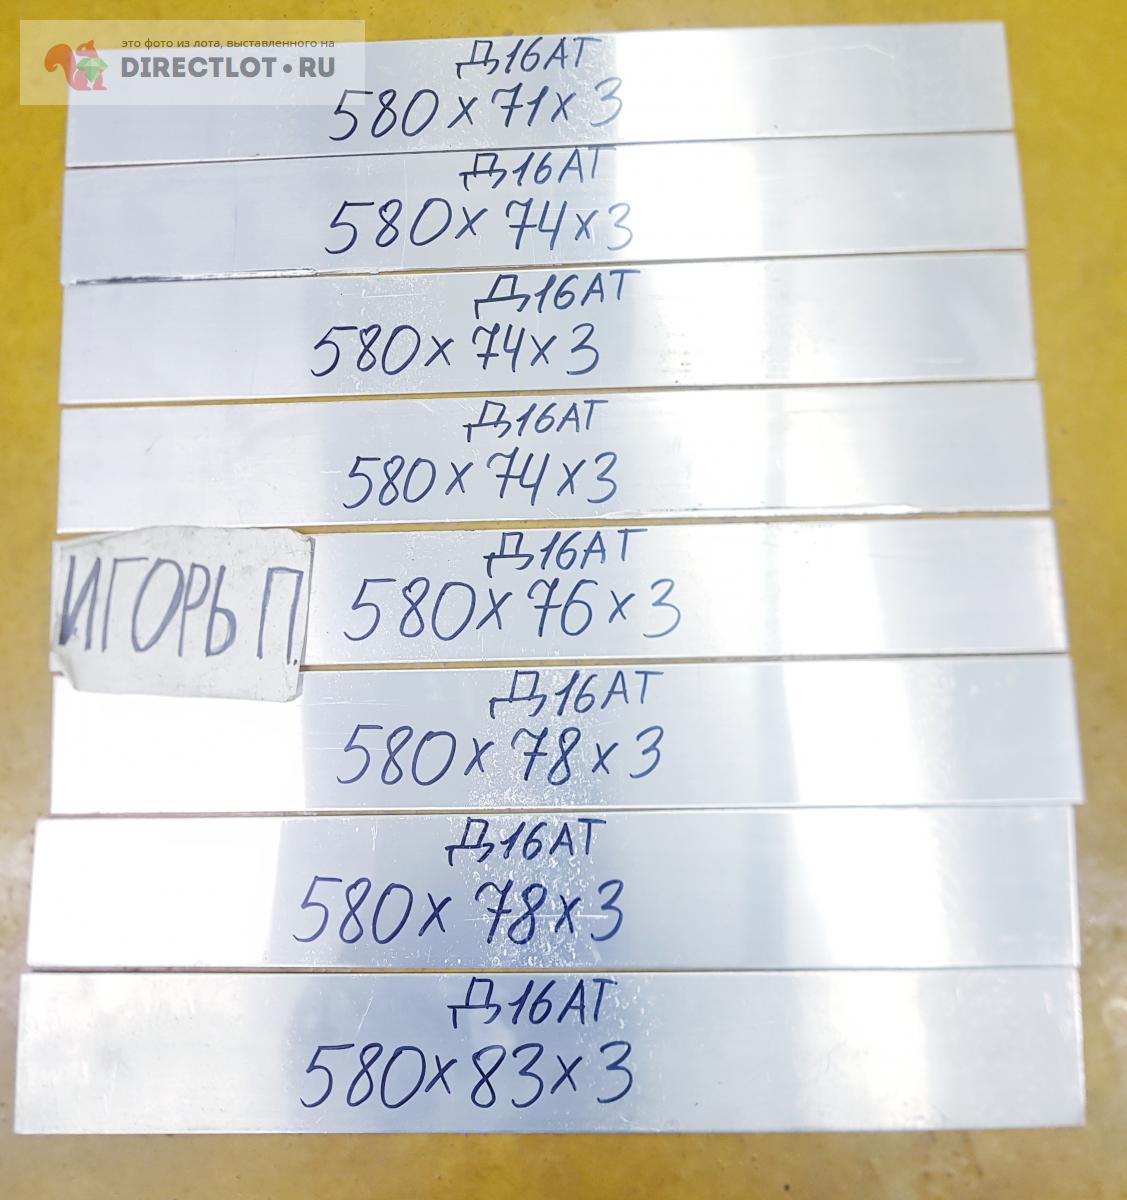 это фото из лота, выставленного на
DIRECTLOT•RU
Д16АТ
580х71х3
Д16АТ
580х74х3
Д16АТ
580х74х3
Д16АТ
580х74х3
Д16АТ
ИГОРЬ П.
580х76х3
Д16АТ
580х78х3
Д16АТ
580х78х3
Д16АТ
580х83х3